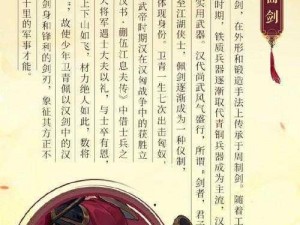 面剑
剑，在外形和锻造手法上传承于周制剑。随着工
时期，铁质兵器逐渐取代青铜兵器成为主流，汉
实用武器。汉代尚武风气盛行，所谓“剑者，君子
至江湖侠士，佩剑逐渐成为一种仪制，
体现身份。卫青一生七次出击匈奴，
武帝时期汉在汉匈战争中的获胜立
汉书·蒯伍江息夫传》中借士兵之
将军遇士大夫以礼，与士卒有恩，
上下山如飞，材力绝人如此，数将
故使少年卫青佩以汉剑中的汉
剑身和锋利的剑刃，象征其方正不
十里的军事才能。